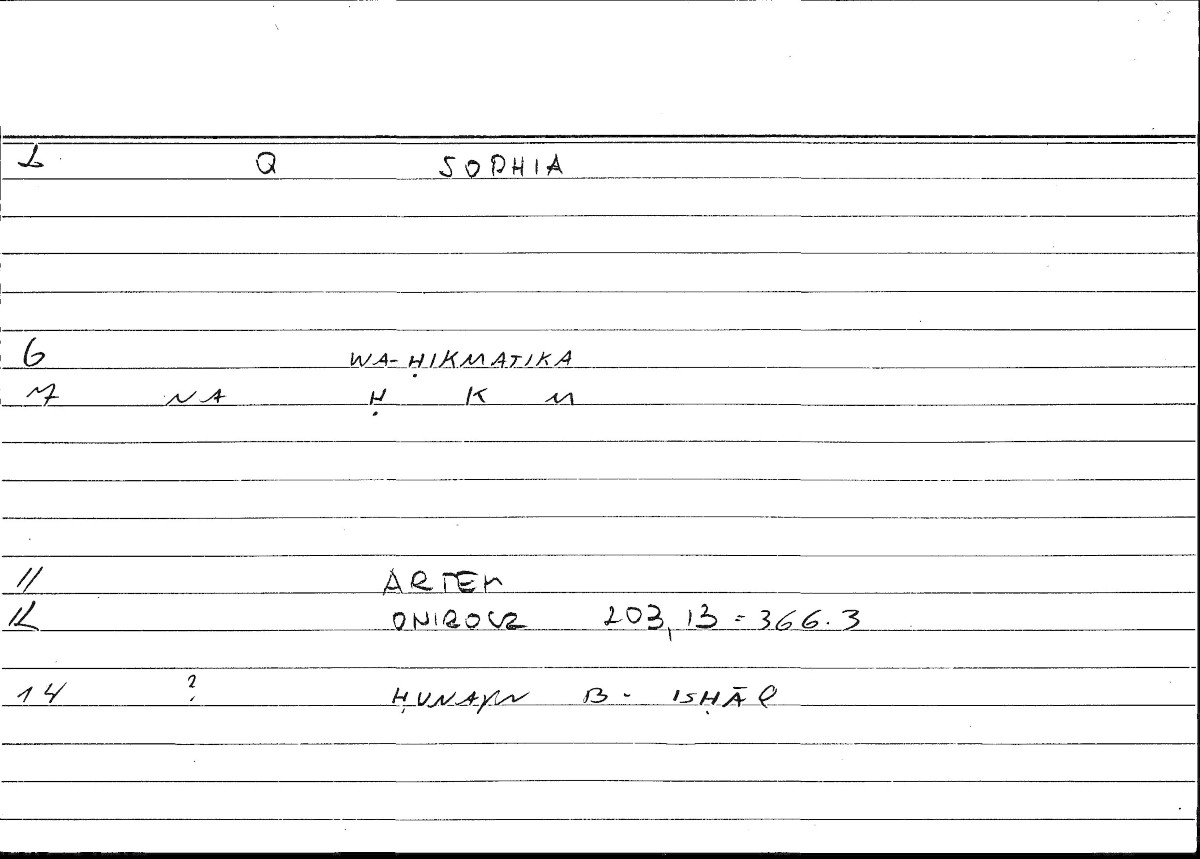 2 Q SOPHIA
6 WA-ḤIKMATIKA
7 NA Ḥ K M
11 ARTEM
12 ONIROCR 203,13 = 366.3
14 ? ḤUNAYN B. ISḤĀQ